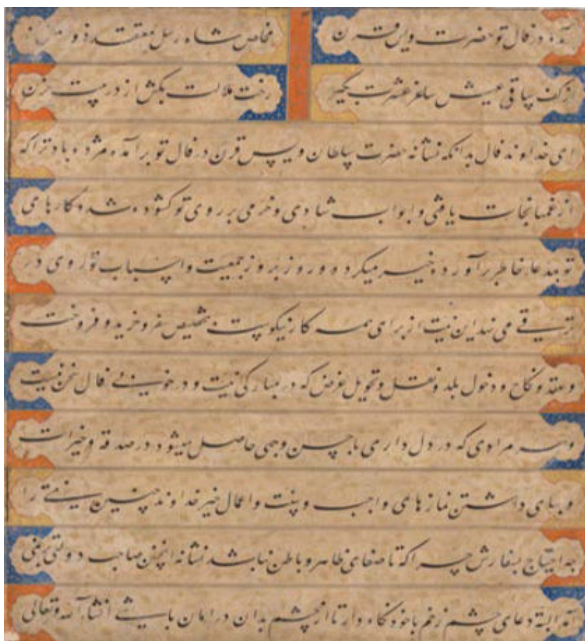 آمده در فال تو حضرت ویس قرن مخلص شاه رسل معتقد ذو المنن
از کف ساقی عیش ساغر عشرت بگیر رخت ملالت بکش از در بیت حزن
ای خداوند فال بدانکه نشانه حضرت سلطان ویس قرن در فال تو برآمده مژده باد ترا که
از غمها نجات یافتی و ابواب شادی و خرمی بر روی تو گشوده شده کارهای
تو بمدعا خاطر برآورده خیر میگردد و روز بروز جمعیت و اسباب تو روی در
ترقی می نهد این نیت از برای همه کار نیکوست بتخصیص سفر و خرید و فروخت
و عقد و نکاح و دخول بلده و نقل و تحویل غرض که در مبارکی نیت و در خوبی فال سخن نیست
و هر مرادی که در دل داری باحسن وجهی حاصل میشود در صدقه و خیرات
و برپای داشتن نمازهای واجب و سنت و اعمال خیر خداوند چنین نیتی را
چه احتیاج بسفارش چرا که تا صفای ظاهر و باطن نباشد نشانه اینچنین صاحب دولتی نمی
آید البته دعای چشم زخم با خود نگاه دار تا از چشم بدان در امان باشی انشاء الله تعالی